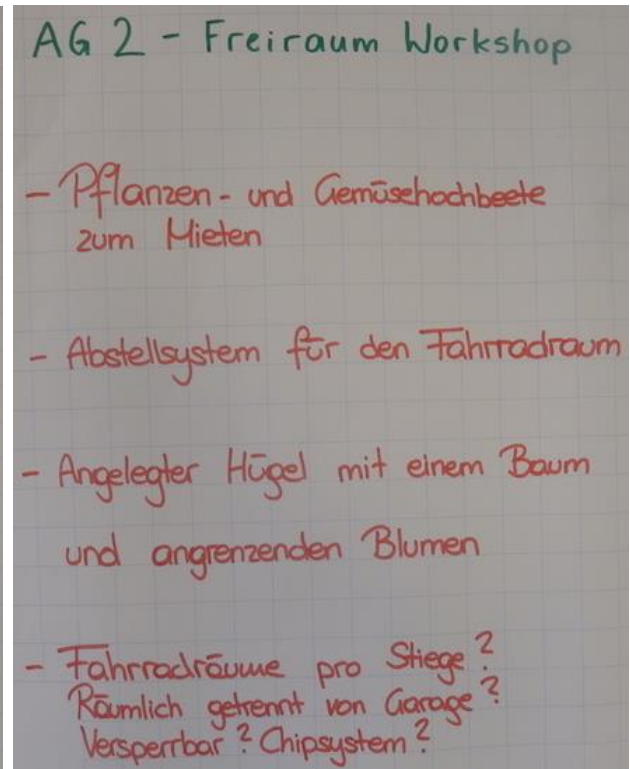 AG 2 - Freiraum Workshop
- Pflanzen- und Gemüsehochbeete
zum Mieten
- Abstellsystem für den Fahrradraum
- Angelegter Hügel mit einem Baum
und angrenzenden Blumen
- Fahrradräume pro Stiege?
Räumlich getrennt von Garage?
Versperrbar? Chipsystem?